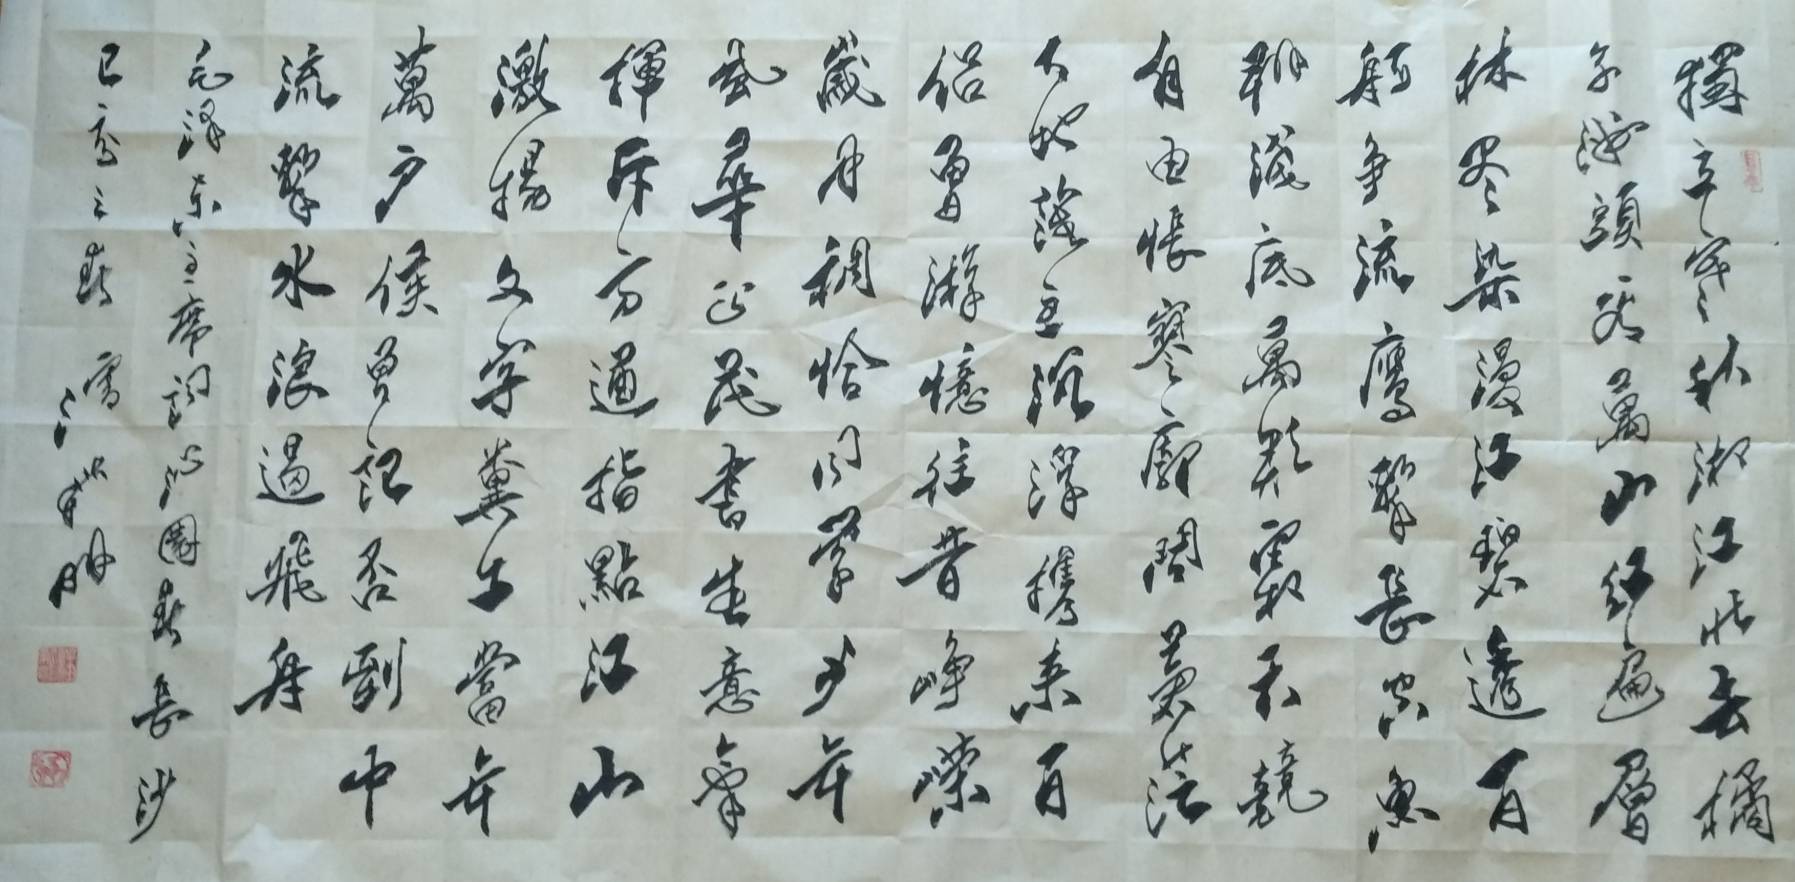 獨立寒秋湘江北去橘
子洲頭看萬山紅遍層
林盡染漫江碧透百
舸爭流鷹擊長空魚
翔淺底萬類霜天競
自由悵寥廓問蒼茫
大地誰主沉浮攜來百
侶曾游憶往昔崢嶸
歲月稠恰同學少年
風華正茂書生意氣
揮斥方遒指點江山
激揚文字糞土當年
萬戶侯曾記否到中
流擊水浪遏飛舟
毛澤東主席詞沁園春長沙
之春